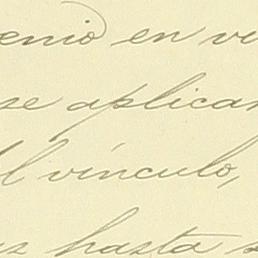 enio en vi
se aplican
el vínculo,
hasta